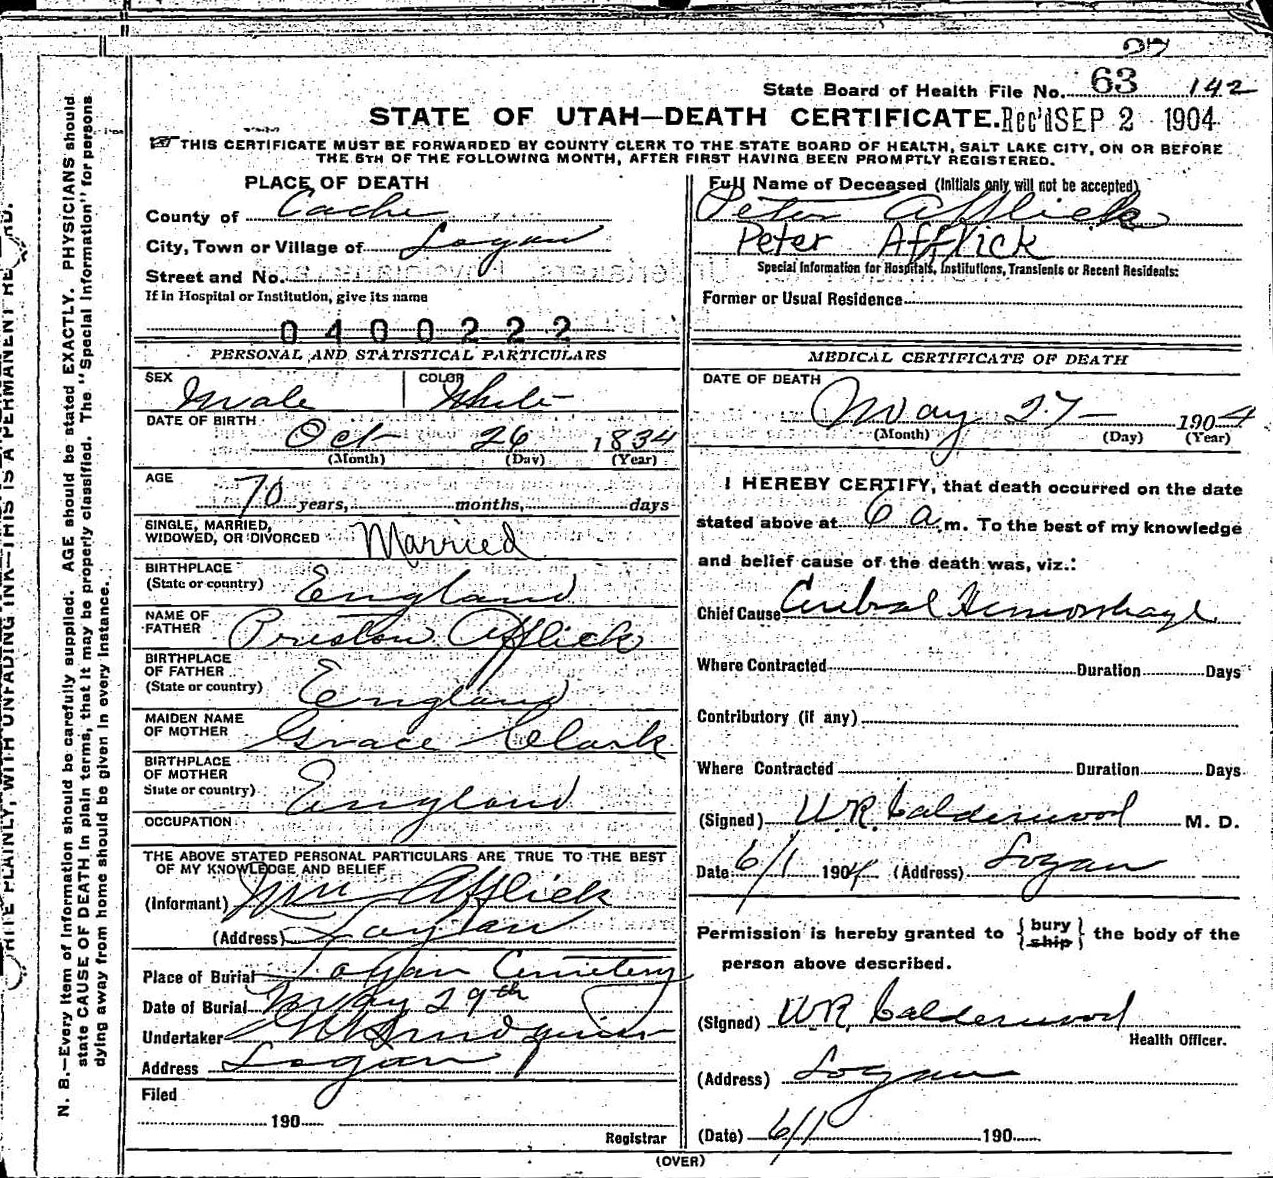 27
State Board of Health File No. 63 142
STATE OF UTAH—DEATH CERTIFICATE. Rec'd SEP 2 1904
THIS CERTIFICATE MUST BE FORWARDED BY COUNTY CLERK TO THE STATE BOARD OF HEALTH, SALT LAKE CITY, ON OR BEFORE
THE 5TH OF THE FOLLOWING MONTH, AFTER FIRST HAVING BEEN PROMPTLY REGISTERED.
PLACE OF DEATH
County of Cache
City, Town or Village of Logan
Street and No.
If in Hospital or Institution, give its name
0400222
PERSONAL AND STATISTICAL PARTICULARS
SEX Male COLOR White
DATE OF BIRTH Oct 26 1834
(Month) (Day) (Year)
AGE
70 years, months, days
SINGLE, MARRIED,
WIDOWED, OR DIVORCED Married
BIRTHPLACE
(State or country) England
NAME OF
FATHER Preston Afflick
BIRTHPLACE
OF FATHER
(State or country) England
MAIDEN NAME
OF MOTHER Grace Clark
BIRTHPLACE
OF MOTHER
State or country) England
OCCUPATION
THE ABOVE STATED PERSONAL PARTICULARS ARE TRUE TO THE BEST
OF MY KNOWLEDGE AND BELIEF
(Informant) Wm Afflick
(Address) Logan
Place of Burial Logan Cemetery
Date of Burial May 29th
Undertaker
Address Logan
Filed
190
Registrar
Full Name of Deceased (Initials only will not be accepted)
Peter Afflick
Peter Afflick
Special Information for Hospitals, Institutions, Transients or Recent Residents:
Former or Usual Residence
MEDICAL CERTIFICATE OF DEATH
DATE OF DEATH
May 27 — 1904
(Month) (Day) (Year)
I HEREBY CERTIFY, that death occurred on the date
stated above at 6 a m. To the best of my knowledge
and belief cause of the death was, viz.:
Chief Cause Cerebral Hemorrhage
Where Contracted Duration Days
Contributory (if any)
Where Contracted Duration Days
(Signed) W.R. Calderwood M. D.
Date 6/1 1904 (Address) Logan
Permission is hereby granted to {bury ship} the body of the
person above described.
(Signed) W.R. Calderwood
Health Officer.
(Address) Logan
(Date) 6/1 190
(OVER)
N. B.—Every item of information should be carefully supplied. AGE should be stated EXACTLY. PHYSICIANS should
state CAUSE OF DEATH in plain terms, that it may be properly classified. The "Special Information" for persons
dying away from home should be given in every instance.
PLAINLY, WITH UNFADING INK—THIS IS A PERMANENT